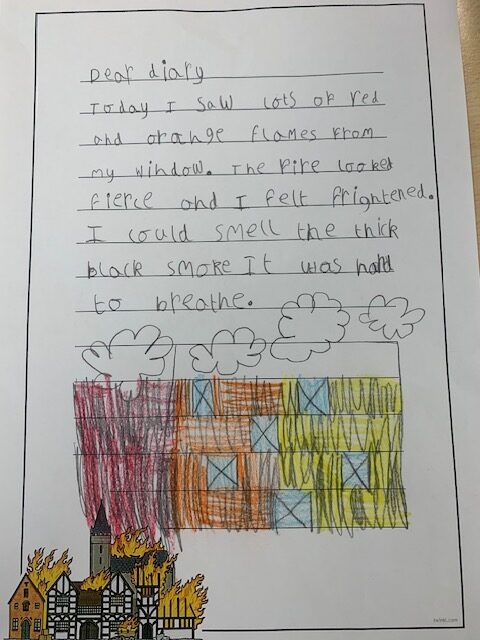 Dear diary
Today I saw lots of red
and orange flames from
my window. The fire looked
fierce and I felt frightened.
I could smell the thick
black smoke It was hard
to breathe.
twinkl.com